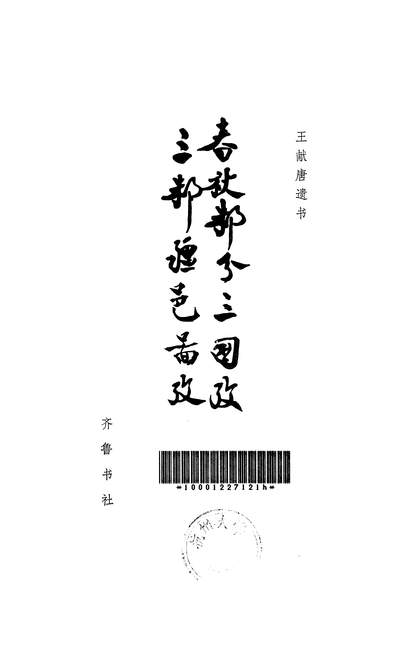 王献唐遗书
春秋邾分三國攷
三邾疆邑啚攷
齐鲁书社
*10001227121h*